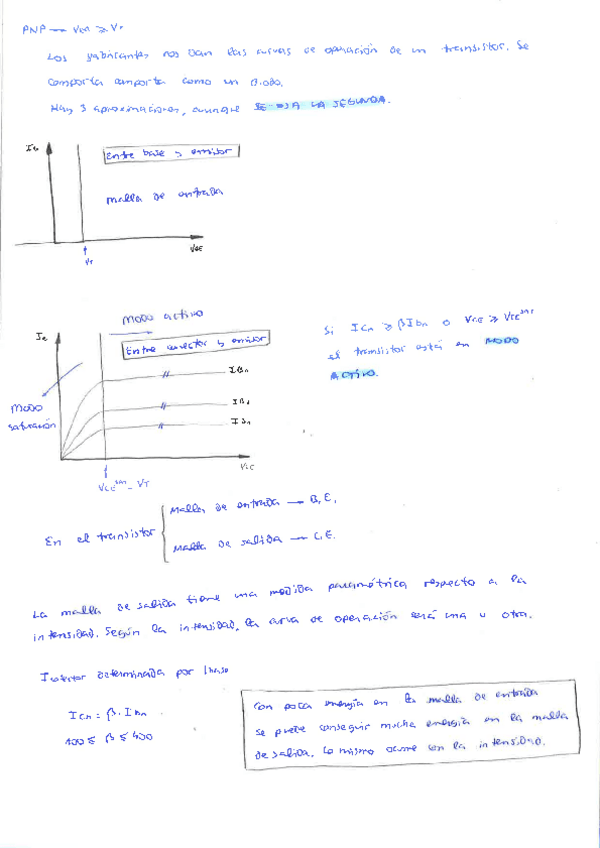 PNP → VEB ≥ Vr
Los fabricantes nos dan las curvas de operación de un transistor. Se
comporta comporta como un Diodo.
Hay 3 aproximaciones, aunque SE USA LA SEGUNDA.
Entre base y emisor
malla de entrada
VBE
Vr
MODO activo
Entre colector y emisor
IBn
IB2
IB1
MODO
saturación
VCE
VCE sat = Vr
Si ICn ≥ βIbn o VCE ≥ VCE sat
el transistor está en MODO
ACTIVO.
En el transistor
Malla de entrada → B, E.
Malla de salida → C, E.
La malla de salida tiene una medida paramétrica respecto a la
intensidad. Según la intensidad, la curva de operación será una u otra.
determinada por Ibase
ICn = β · Ibn
100 ≤ β ≤ 400
Con poca energía en la malla de entrada
se puede conseguir mucha energía en la malla
de salida. Lo mismo ocurre con la intensidad.